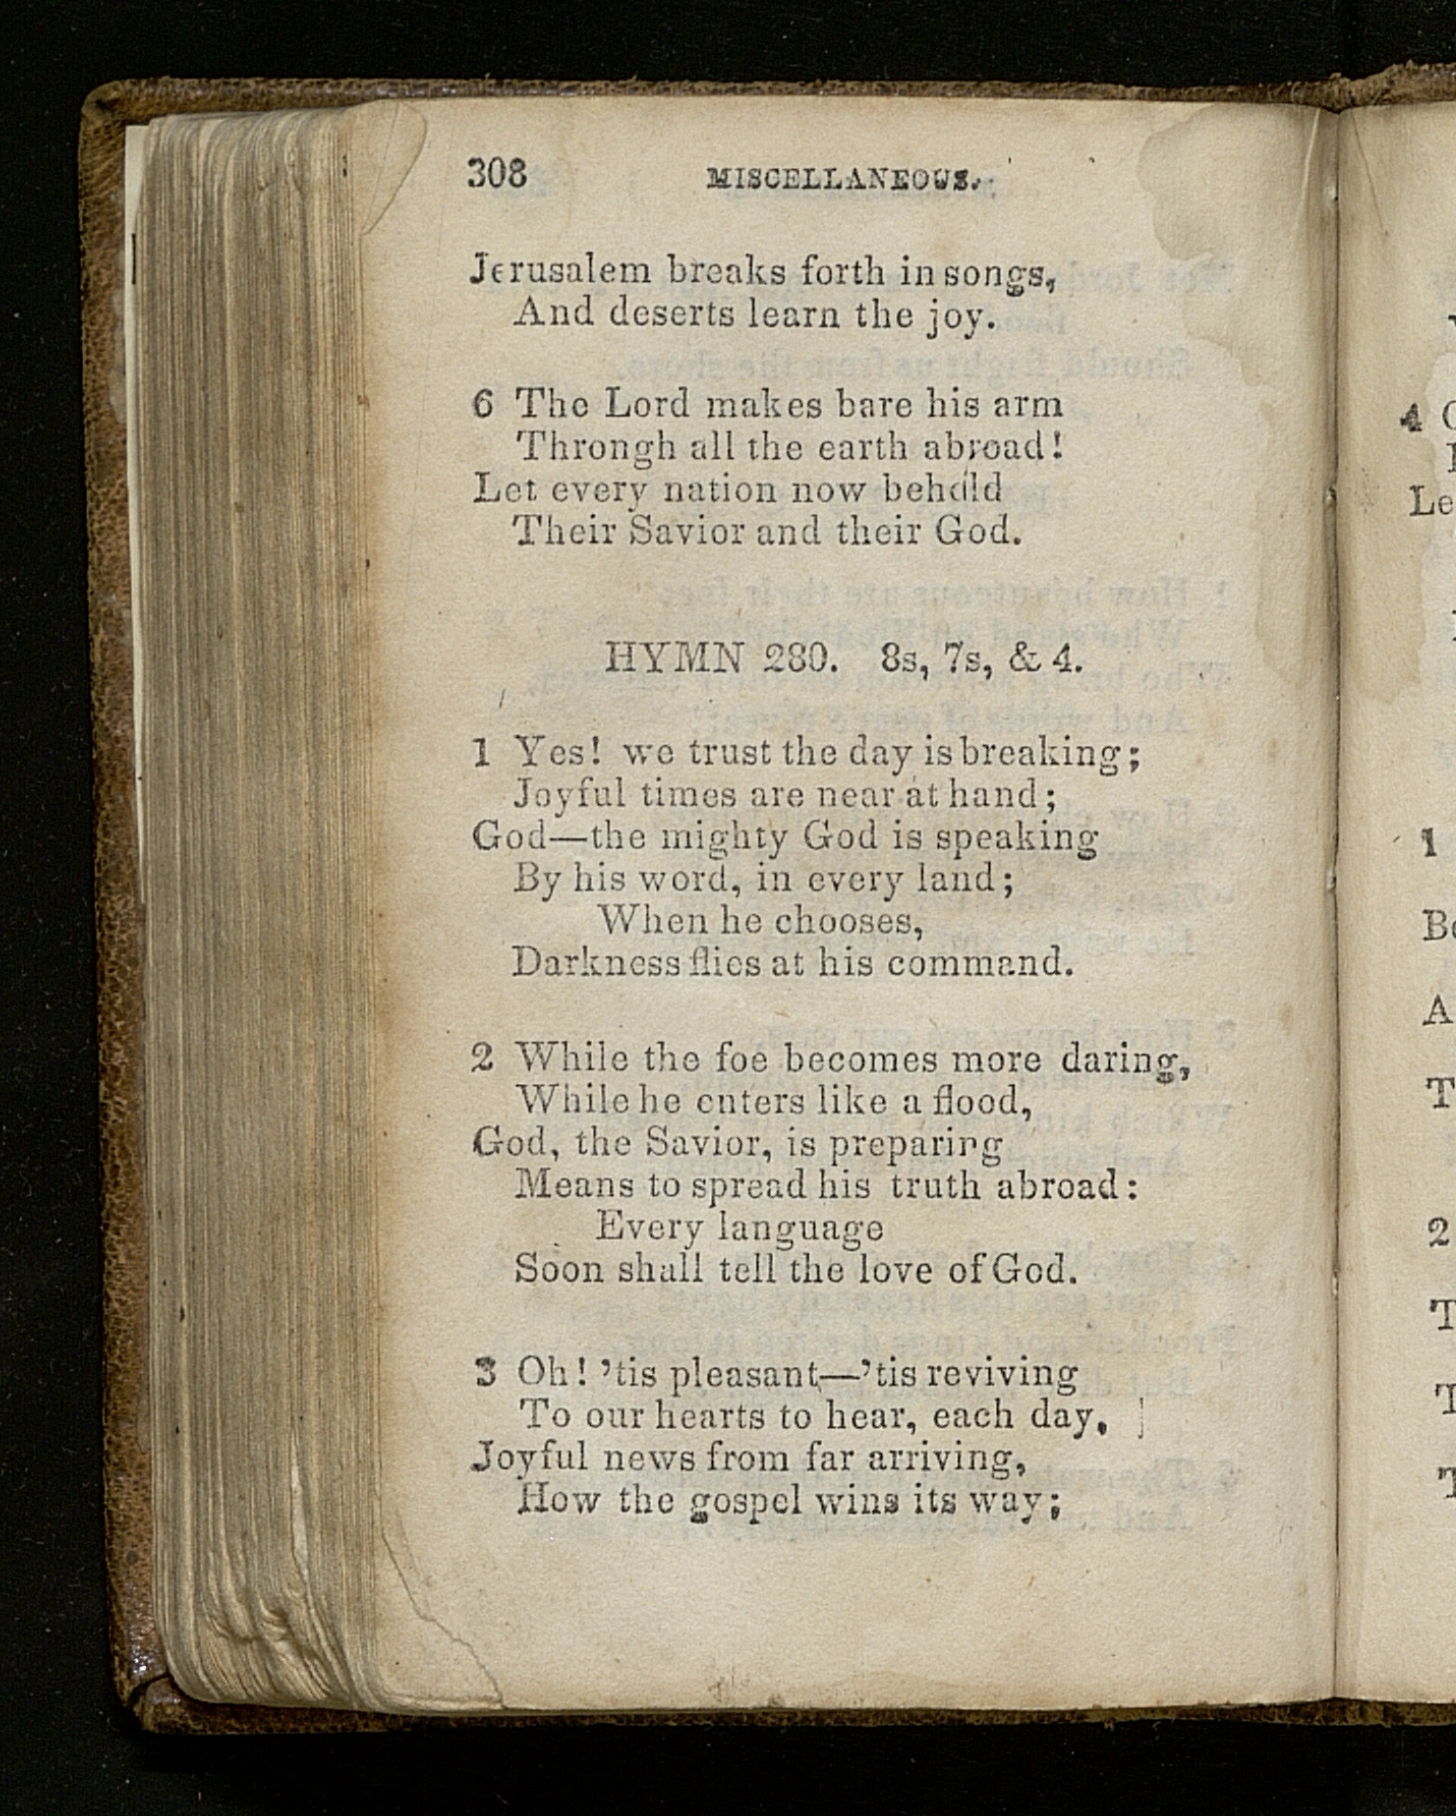 308 MISCELLANEOUS.
Jerusalem breaks forth in songs,
And deserts learn the joy.
6 The Lord makes bare his arm
Throngh all the earth abroad!
Let every nation now behold
Their Savior and their God.
HYMN 280. 8s, 7s, & 4.
1 Yes! we trust the day is breaking;
Joyful times are near at hand;
God—the mighty God is speaking
By his word, in every land;
When he chooses,
Darkness flies at his command.
2 While the foe becomes more daring,
While he enters like a flood,
God, the Savior, is preparing
Means to spread his truth abroad:
Every language
Soon shall tell the love of God.
3 Oh! ’tis pleasant—’tis reviving
To our hearts to hear, each day,
Joyful news from far arriving,
How the gospel wins its way;
4
Le
1
A
T
2
T
T
T